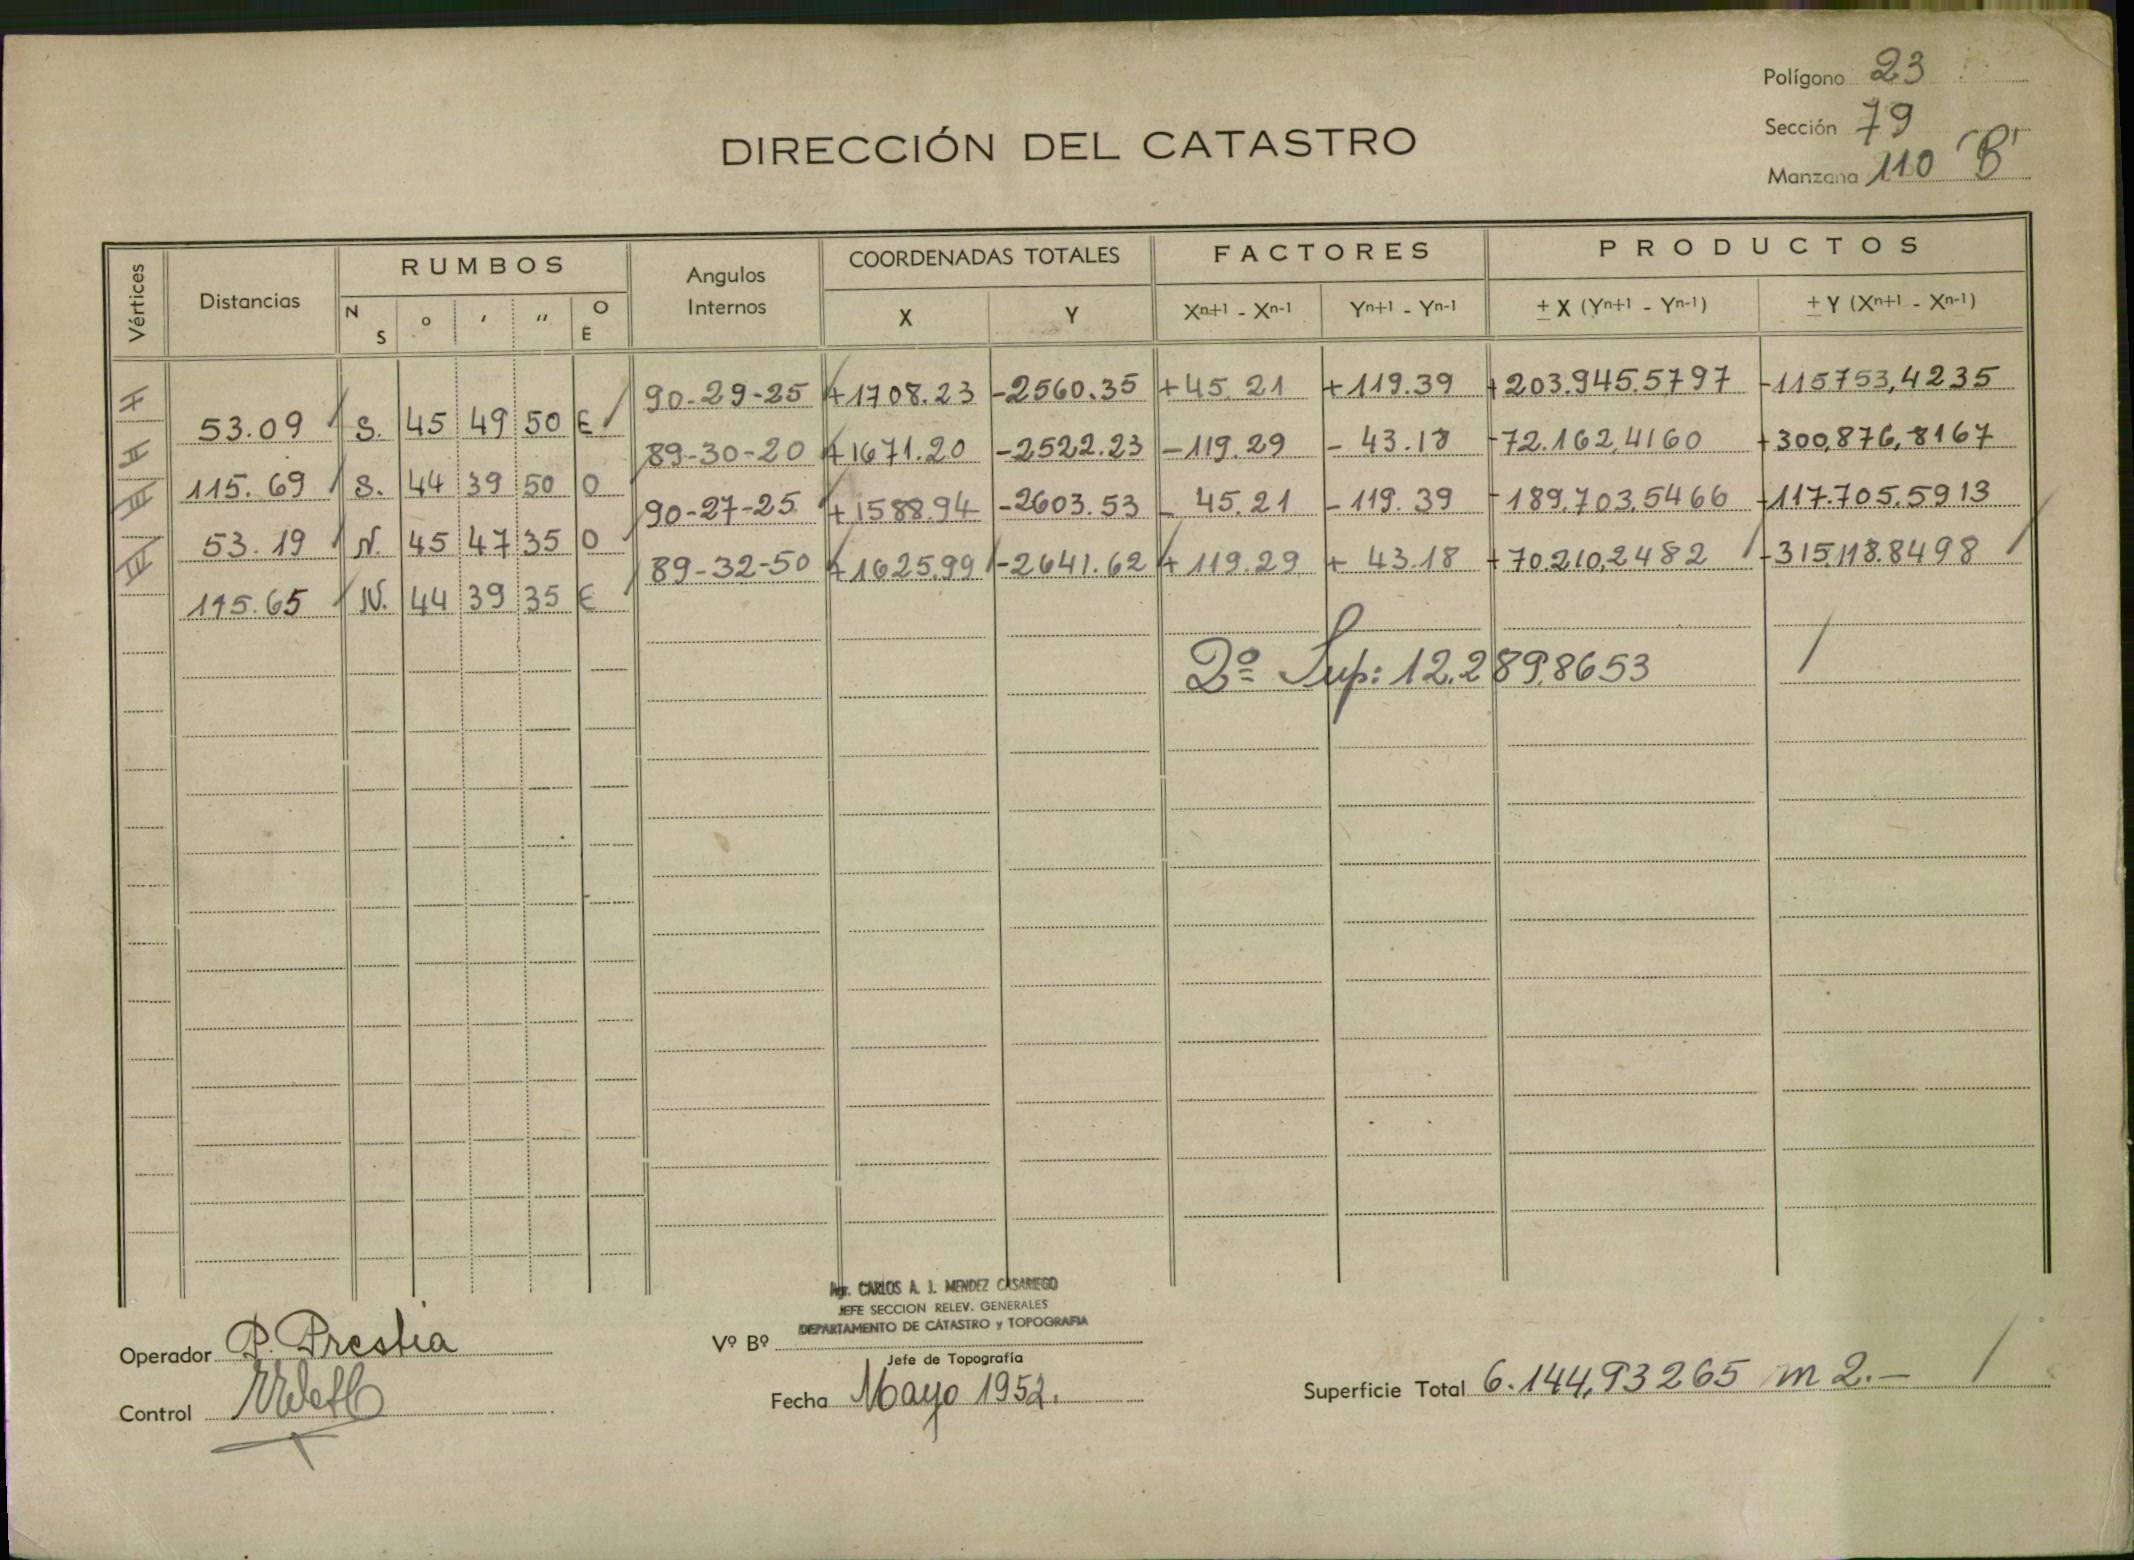 Polígono 23
Sección 79
Manzana 110 "B"
DIRECCIÓN DEL CATASTRO
Vértices Distancias RUMBOS Angulos Internos COORDENADAS TOTALES FACTORES PRODUCTOS
N S o ' '' O E X Y Xn+1 - Xn-1 Yn+1 - Yn-1 ± X (Yn+1 - Yn-1) ± Y (Xn+1 - Xn-1)
I 90-29-25 +1708.23 -2560.35 +45.21 +119.39 +203.945.5797 -115753,4235
53.09 S. 45 49 50 E
II 89-30-20 +1671.20 -2522.23 -119.29 - 43.18 -72.162,4160 +300,876,8167
115.69 S. 44 39 50 O
III 90-27-25 +1588.94 -2603.53 - 45.21 -119.39 -189.703,5466 +117.705.5913
53.19 N. 45 47 35 O
IV 89-32-50 +1625.99 -2641.62 +119.29 + 43.18 +70.210,2482 -315,118.8498
115.65 N. 44 39 35 E
2º Sup: 12.289,8653
Agr. CARLOS A. J. MENDEZ CASARIEGO
JEFE SECCION RELEV. GENERALES
DEPARTAMENTO DE CATASTRO y TOPOGRAFIA
Operador P. Prestia
Vº Bº
Jefe de Topografía
Control
Fecha Mayo 1952.
Superficie Total 6.144,93265 m2.-